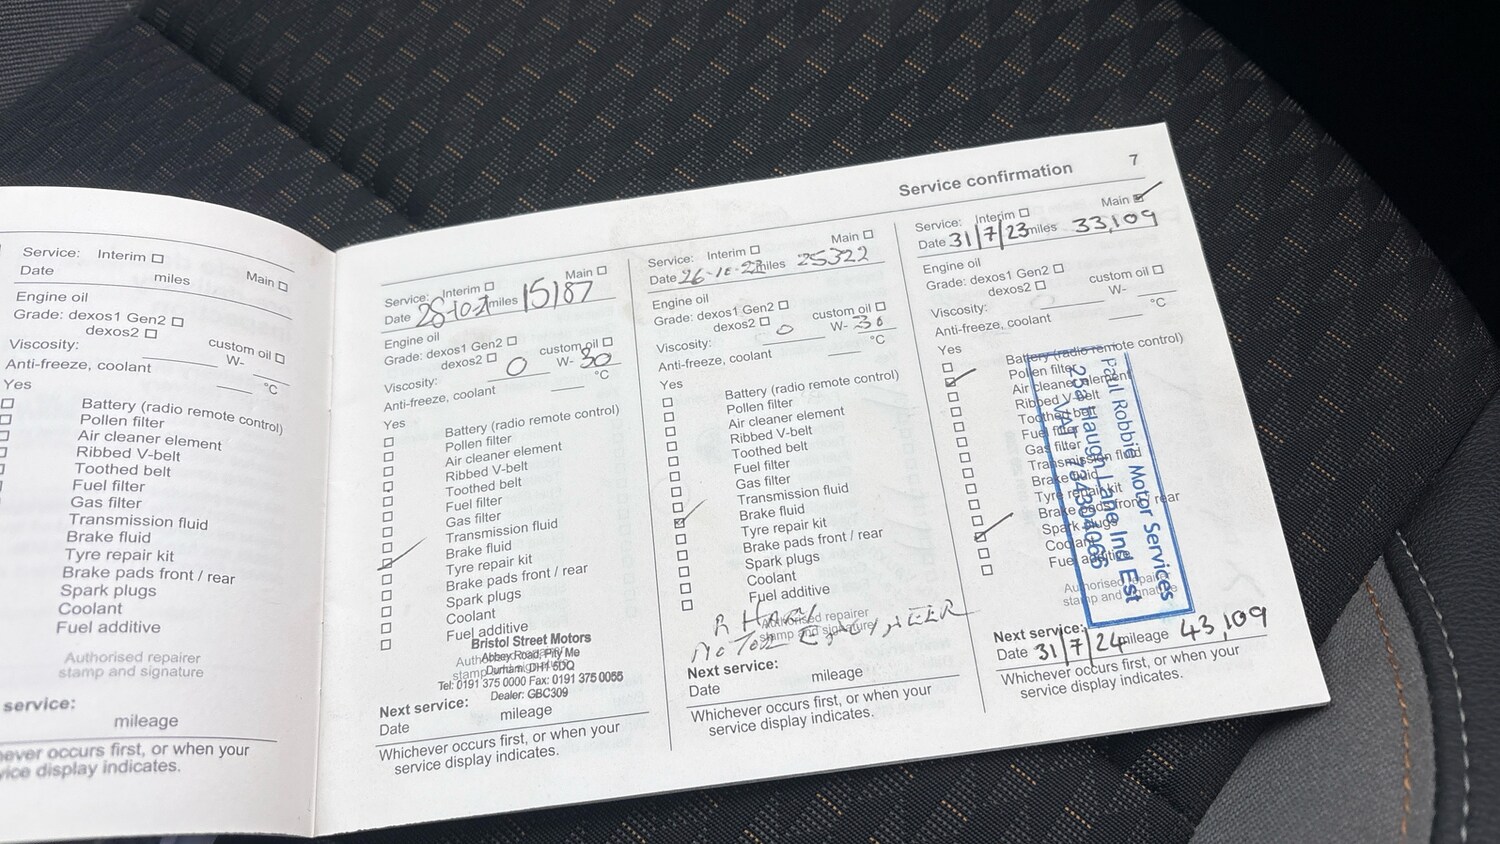 Service: Interim
Main
Date
miles
Engine oil
Grade: dexos1 Gen2
dexos2
custom oil
Viscosity:
W-
Anti-freeze, coolant
°C
Yes
Battery (radio remote control)
Pollen filter
Air cleaner element
Ribbed V-belt
Toothed belt
Fuel filter
Gas filter
Transmission fluid
Brake fluid
Tyre repair kit
Brake pads front / rear
Spark plugs
Coolant
Fuel additive
Authorised repairer
stamp and signature
service:
mileage
ever occurs first, or when your
vice display indicates.
Service: Interim
Main
Date 28-10-21 miles 15187
Engine oil
Grade: dexos1 Gen2
dexos2
custom oil
Viscosity: 0 W- 30
Anti-freeze, coolant °C
Yes
Battery (radio remote control)
Pollen filter
Air cleaner element
Ribbed V-belt
Toothed belt
Fuel filter
Gas filter
Transmission fluid
Brake fluid
Tyre repair kit
Brake pads front / rear
Spark plugs
Coolant
Fuel additive
Bristol Street Motors
Abbey Road, Pity Me
Durham, DH1 5DQ
Tel: 0191 375 0000 Fax: 0191 375 0055
Dealer: GBC309
Next service:
Date mileage
Whichever occurs first, or when your
service display indicates.
Service confirmation 7
Service: Interim
Main
Date miles 25322
Engine oil
Grade: dexos1 Gen2
dexos2
custom oil
Viscosity: 0 W- 30
Anti-freeze, coolant °C
Yes
Battery (radio remote control)
Pollen filter
Air cleaner element
Ribbed V-belt
Toothed belt
Fuel filter
Gas filter
Transmission fluid
Brake fluid
Tyre repair kit
Brake pads front / rear
Spark plugs
Coolant
Fuel additive
Authorised repairer
stamp and signature
Next service:
Date mileage
Whichever occurs first, or when your
service display indicates.
Service: Interim
Main
Date 31/7/23 miles 33,109
Engine oil
Grade: dexos1 Gen2
dexos2
custom oil
Viscosity: W-
Anti-freeze, coolant °C
Yes
Battery (radio remote control)
Pollen filter
Air cleaner element
Ribbed V-belt
Toothed belt
Fuel filter
Gas filter
Transmission fluid
Brake fluid
Tyre repair kit
Brake pads front / rear
Spark plugs
Coolant
Fuel additive
Authorised repairer
stamp and signature
Paul Robbie Motor Services
Haugh Lane Ind Est
VAT
Next service:
Date 31/7/24 mileage 43,109
Whichever occurs first, or when your
service display indicates.